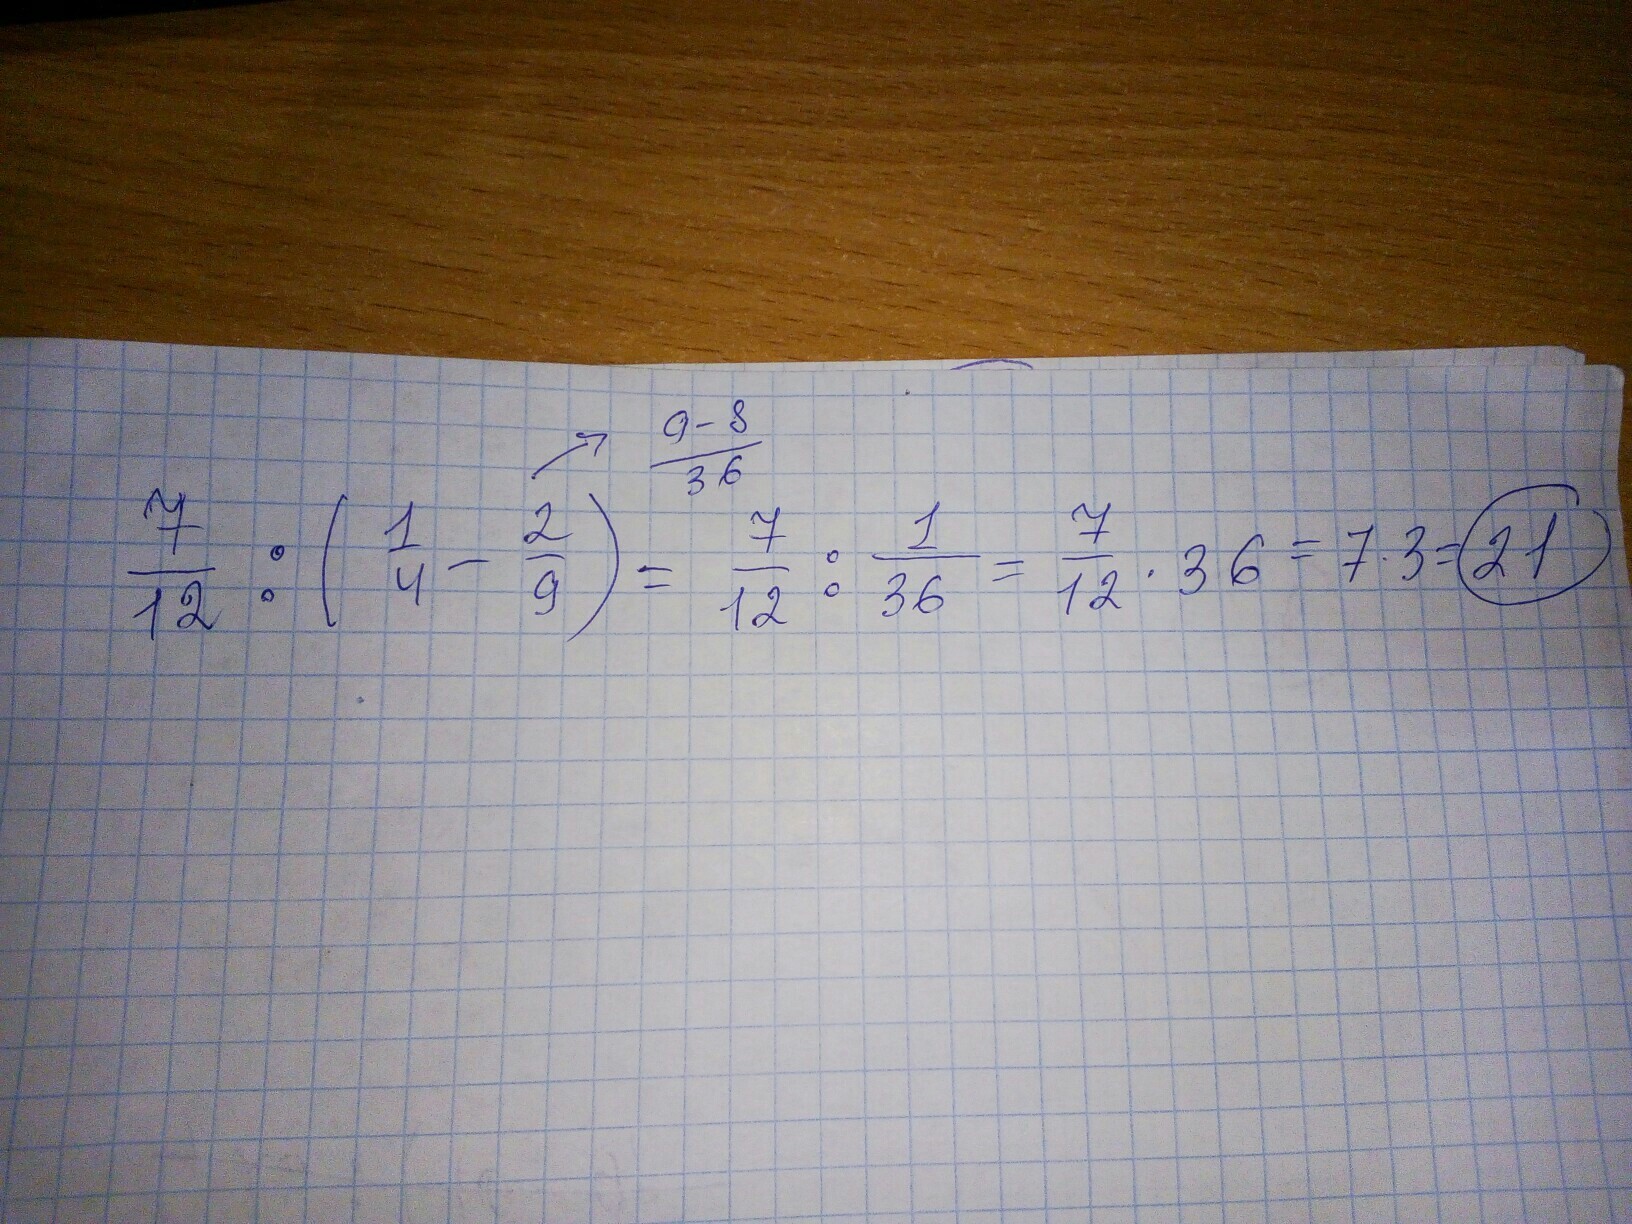 9-8/36
7/12 : (1/4 - 2/9) = 7/12 : 1/36 = 7/12 · 36 = 7·3 = 21